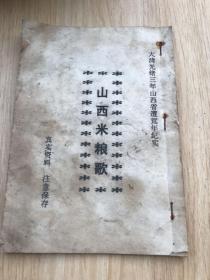 大清光绪三年山西省遭荒年纪实
山西米粮歌
真实资料 注意保存